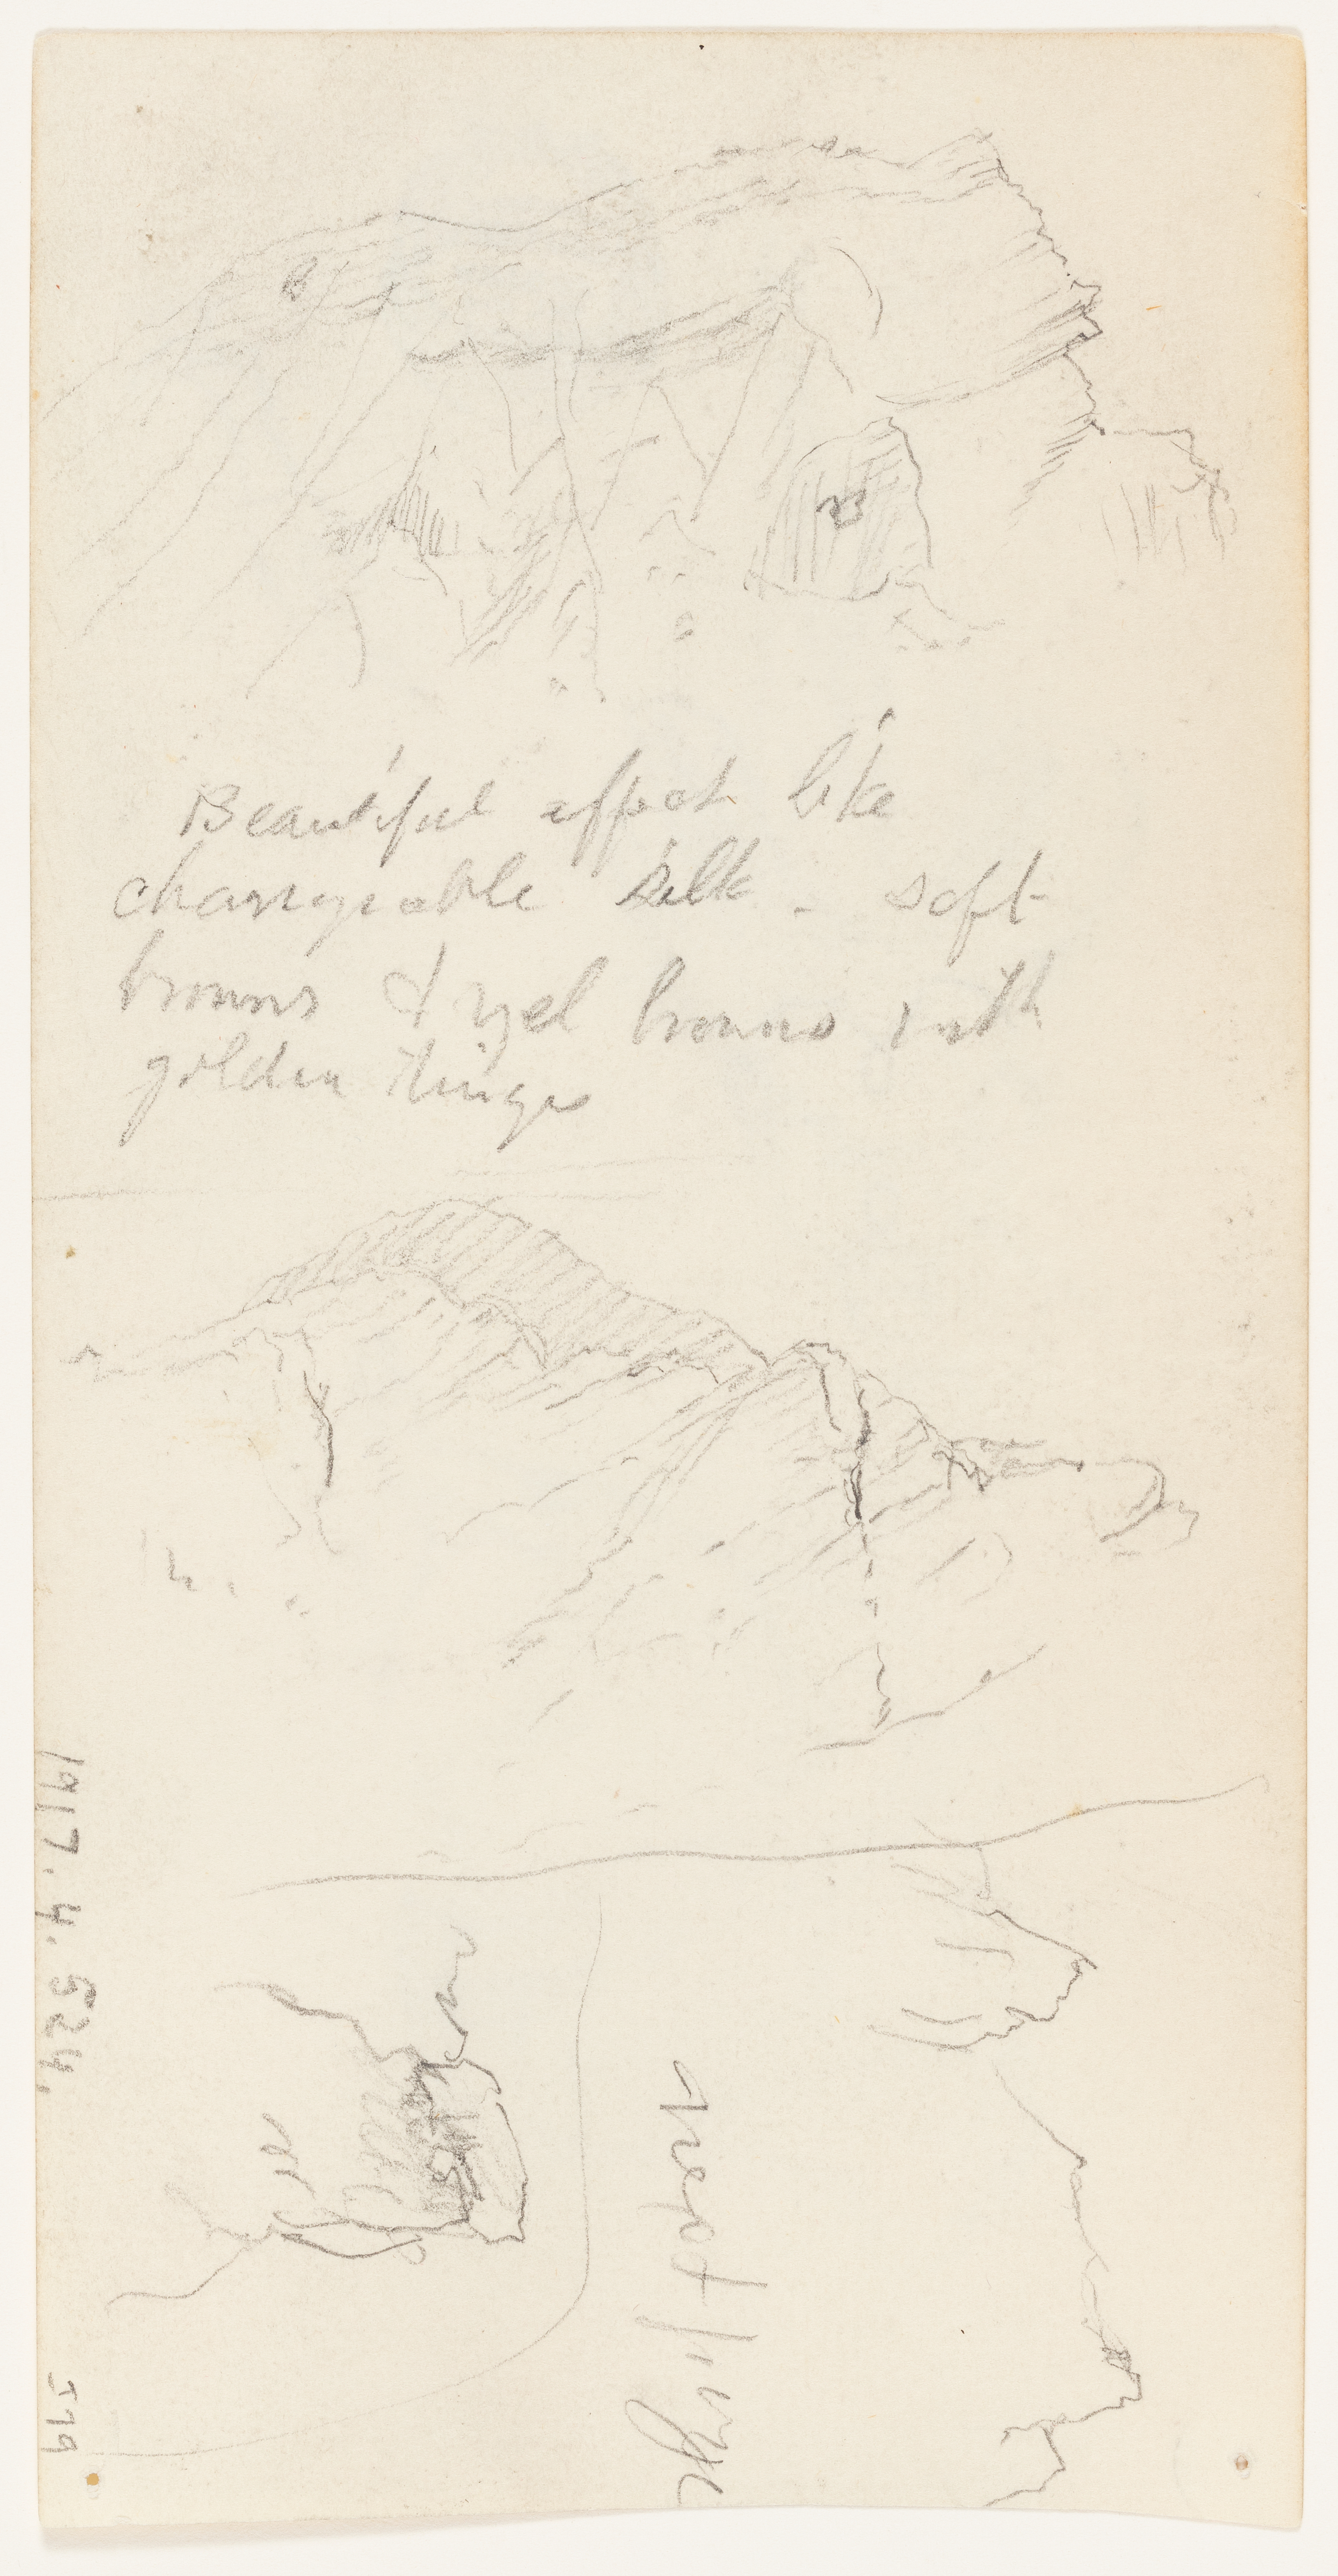 Beautiful effect like
changeable silk - soft
browns & yel browns with
golden tinges
1917. 4. 524.